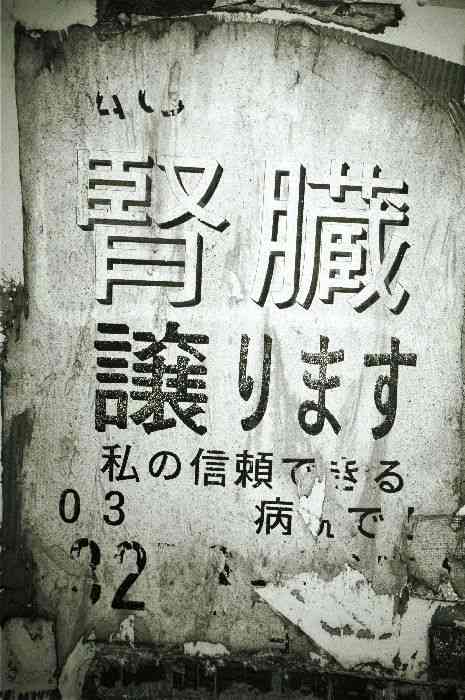 腎臓
譲ります
私の信頼できる
03 病んで!
32